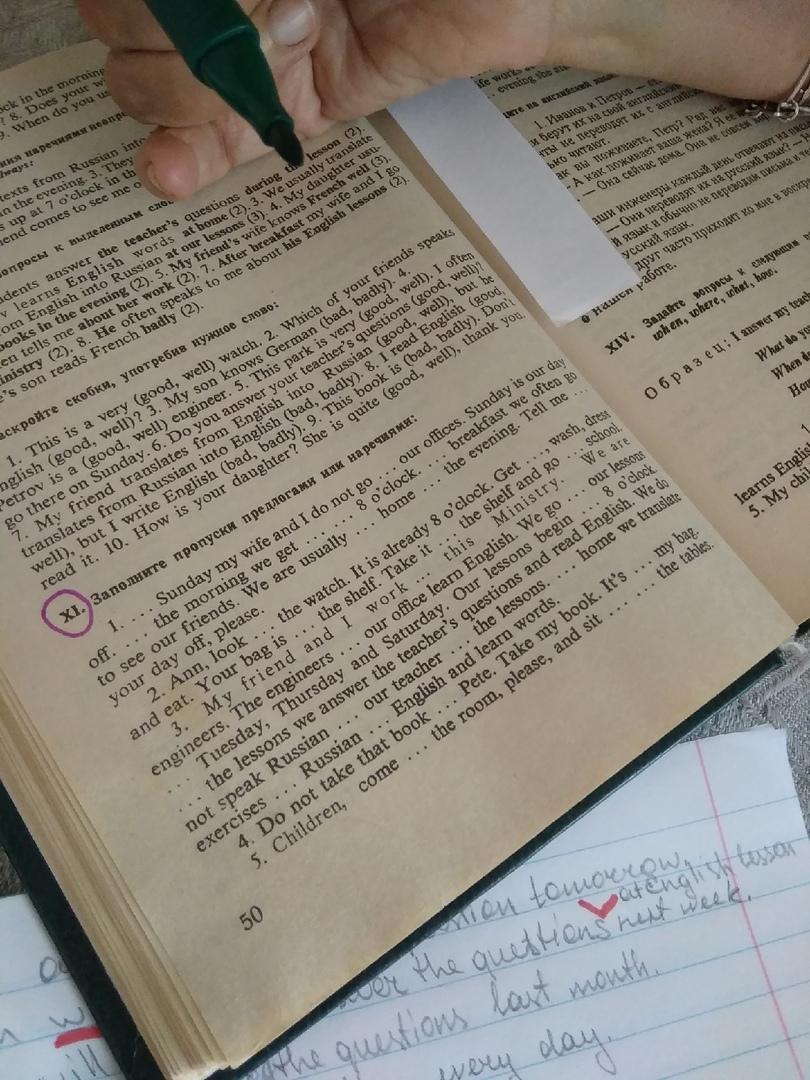 ock in the morning
? 8. Does your
9. When do you us
texts from Russian into
n the evening. 3. They
s up at 7 o'clock in th
end comes to see me o
вопросы к выделенным
dents answer the teacher's questions during the lesson (2).
learns English words at home (2). 3. We usually translate
om English into Russian at our lessons (3). 4. My daughter usu-
books in the evening (2). 5. My friend's wife knows French well (3).
en tells me about her work (2). 7. After breakfast my wife and I go
inistry (2). 8. He often speaks to me about his English lessons (2).
e's son reads French badly (2).
аскройте скобки, употребив нужное слово:
1. This is a very (good, well) watch. 2. Which of your friends speaks
nglish (good, well)? 3. My son knows German (bad, badly). 4.
Petrov is a (good, well) engineer. 5. This park is very (good, well), I often
go there on Sunday. 6. Do you answer your teacher's questions (good, well)?
7. My friend translates from English into Russian (good, well), but he
translates from Russian into English (bad, badly). 8. I read English (good,
well), but I write English (bad, badly). 9. This book is (bad, badly). Don't
read it. 10. How is your daughter? She is quite (good, well), thank you.
XI. Заполните пропуски предлогами или наречиями:
1. ... Sunday my wife and I do not go ... our offices. Sunday is our day
off. ... the morning we get ... ... 8 o'clock. ... breakfast we often go
to see our friends. We are usually ... home ... the evening. Tell me ...
your day off, please.
2. Ann, look ... the watch. It is already 8 o'clock. Get ..., wash, dress
and eat. Your bag is ... the shelf. Take it ... the shelf and go ... school.
3. My friend and I work ... this Ministry. We are
engineers. The engineers ... our office learn English. We go ... our lessons
... Tuesday, Thursday and Saturday. Our lessons begin ... 8 o'clock.
... the lessons we answer the teacher's questions and read English. We do
not speak Russian ... our teacher ... the lessons. ... home we translate
exercises ... Russian ... English and learn words.
4. Do not take that book ... Pete. Take my book. It's ... my bag.
5. Children, come ... the room, please, and sit ... ... the tables.
50
1. Иванов и Петров
берут их на свой английский
ты не переводят их с английс
ко читают.
ак вы поживаете, Петр? Рад
А как поживает ваша жена? Я
— Она сейчас дома. Она не совсем
аши инженеры каждый день отвечают на
— Они переводят их на русский язык? —
й язык и обычно не переводим письма и
усский язык.
друг часто приходит ко мне в
о нашей работе.
XIV. Задайте вопросы к следующим
when, where, what, how.
Образец: I answer my tea
What do yo
When do
How
learns English
5. My chi
tomorrow.
at english lesson
the questions next week.
the questions last month.
every day.